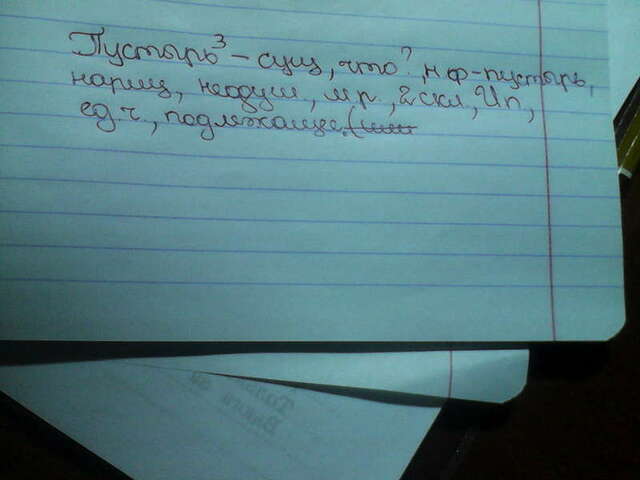 Пустырь³ - сущ, что?, н.ф-пустырь,
нариц, неодуш, м р, 2 скл, Ип,
ед.ч., подлежащее.